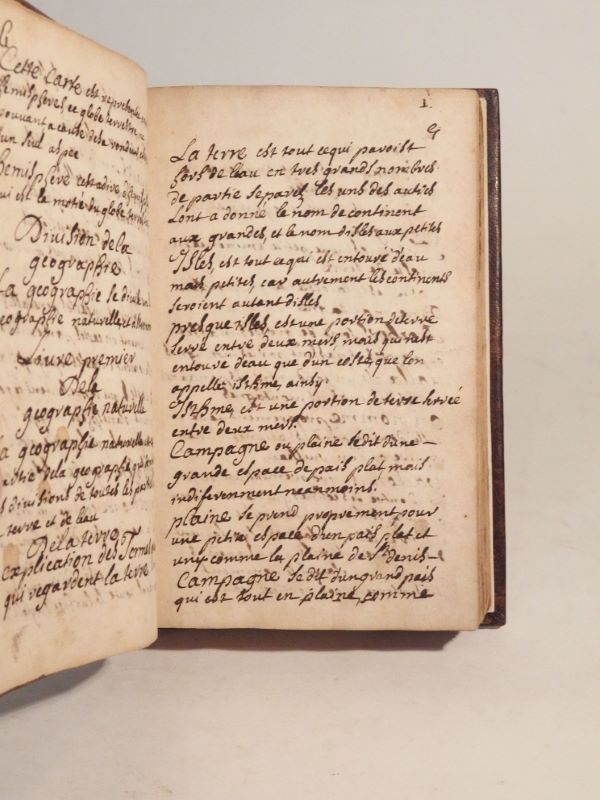 Cette Carte est represente
hemispheres, ce globe terrestre ne
pouvant a cause de sa rondeur
d'un seul aspec
hemisphere cestadire
qui est la motié du globe
Division de la
geographie
La geographie se divise
geographie naturelle et
Livre premier
De la
geographie naturelle
La geographie naturelle est
partie de la geographie qui
divisions de toutes les parties
terre et de l'eau
De la terre
explication des Termes
qui regardent la terre
1.
La terre est tout cequi paroist
hors de l'eau en tres grands nombres
de partie separez les uns des autres
Lont a donne le nom de continent
aux grandes, et le nom disles aux petites
Isles, est tout cequi est entouré deau
mais petites, car autrement les continents
seroient autant disles
presque isles, est une portion de terre
serre entre deux mers mais qui nest
entouré deau que d'un costé, que lon
appelle isthme, ainsy
Isthme, est une portion de terre serrée
entre deux mers.
Campagne ou plaine se dit d'une –
grande espace de pais plat mais
indiferenment neanmoins.
plaine se prend proprement pour
une petite espace d'un pais plat et
uny comme la plaine de St. denis –
Campagne se dit d'un grand pais
qui est tout en plaine, comme